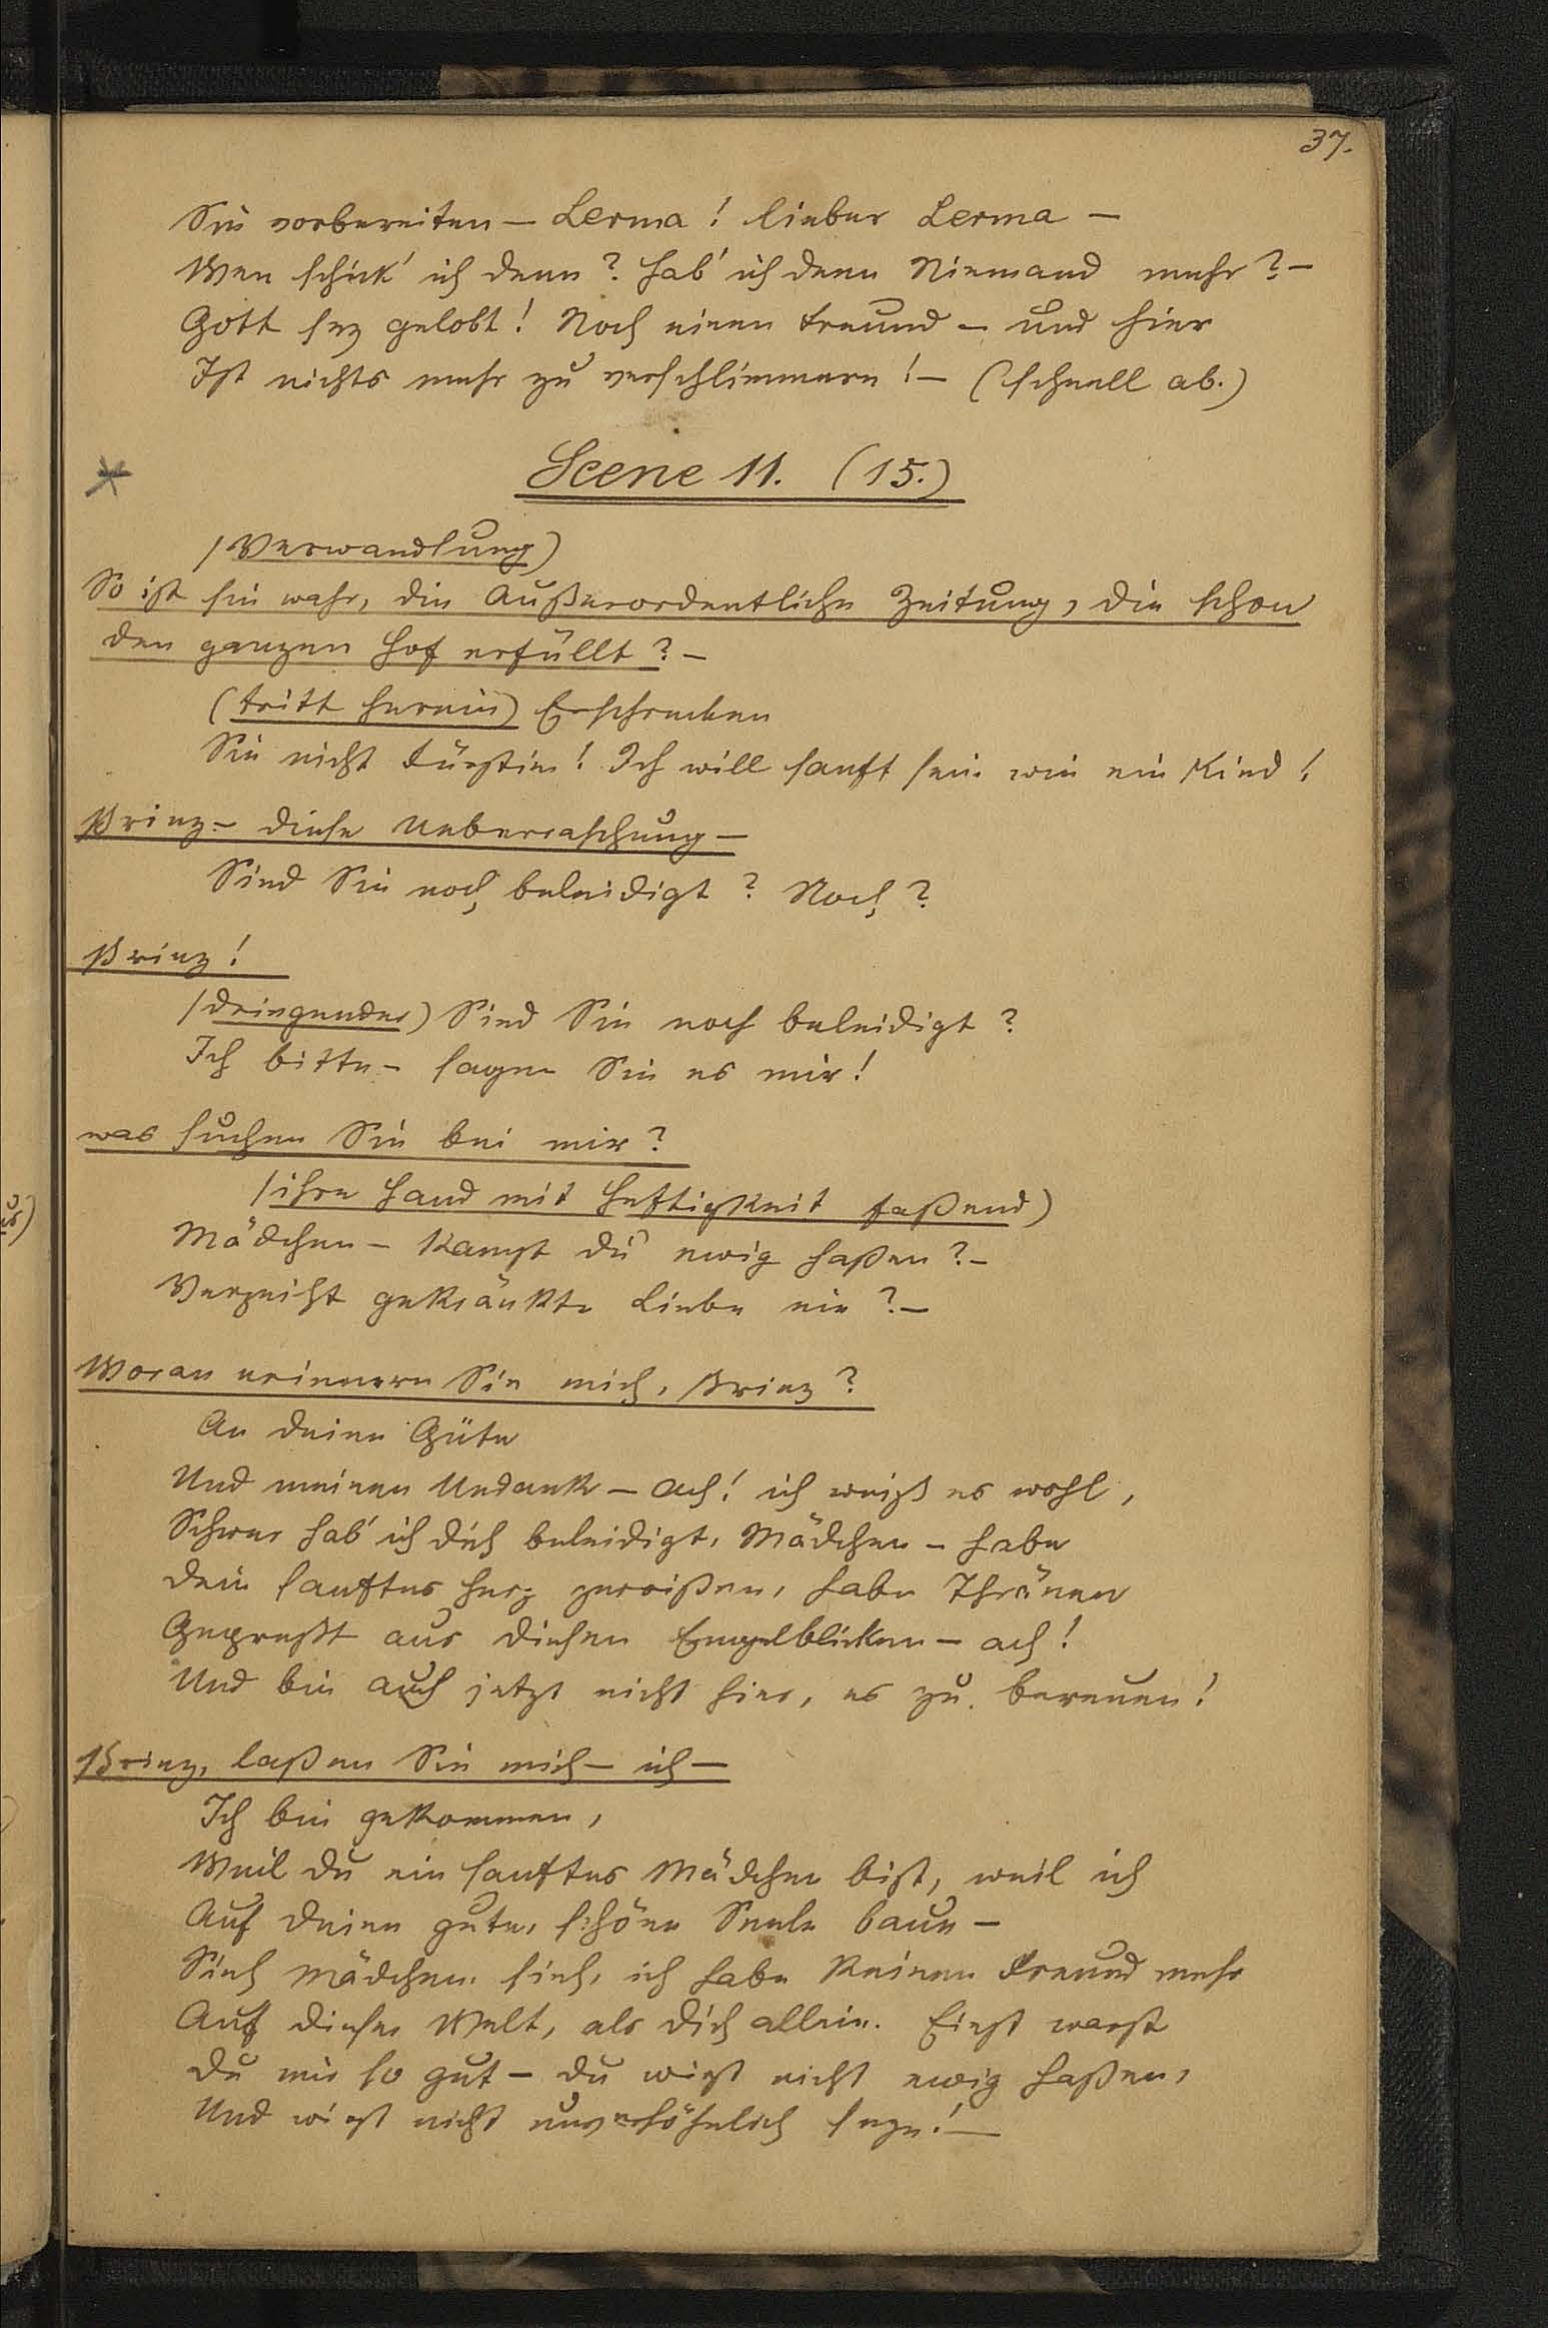 37.
Sie vorbereiten – Lerma! lieber Lerma –
Wen schick' ich denn? Hab' ich denn Niemand mehr? –
Gott sey gelobt! Noch einen Freund – und hier
Ist nichts mehr zu verschlimmern! – (schnell ab.)
Scene 11. (15.)
(Verwandlung)
So ist sie wahr, die Außerordentliche Zeitung, die schon
den ganzen Hof erfüllt? –
(tritt herein) Erschrecken
Sie nicht Fürstin! Ich will sanft sein wie ein Kind!
Prinz – diese Ueberraschung –
Sind Sie noch beleidigt? Noch?
Prinz!
(dringender) Sind Sie noch beleidigt?
Ich bitte – sagen Sie es mir!
was suchen Sie bei mir?
(ihre Hand mit Heftigkeit faßend)
Mädchen – Kannst du ewig haßen? –
Verzeiht gekränkte Liebe nie? –
Woran erinnern Sie mich, Prinz?
An deine Güte
Und meinen Undank – ach! ich weiß es wohl,
Schwer hab' ich dich beleidigt, Mädchen – habe
Dein sanftes Herz zerrißen, habe Thränen
Gepreßt aus diesen Engelblicken – ach!
Und bin auch jetzt nicht hier, es zu bereuen!
Prinz, laßen Sie mich – ich –
Ich bin gekommen,
Weil du ein sanftes Mädchen bist, weil ich
Auf deine gute, schöne Seele baue –
Sieh Mädchen, sieh, ich habe keinen Freund mehr
Auf dieser Welt, als dich allein. Einst warst
Du mir so gut – du wirst nicht ewig haßen,
Und wirst nicht unversöhnlich seyn! –